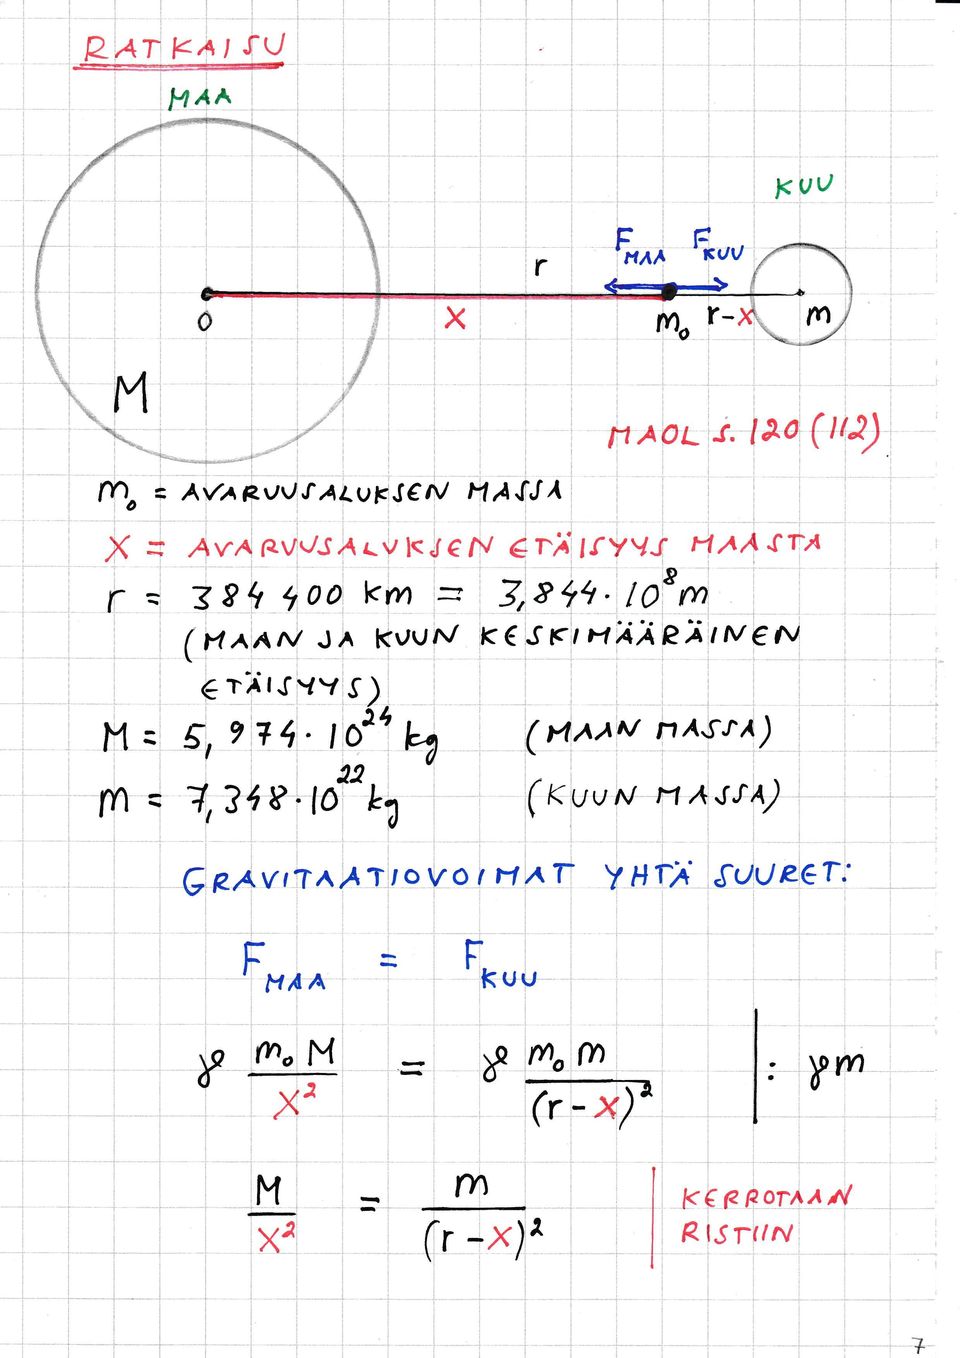 RATKAISU
MAA
KUU
F_MAA F_KUU
r
0 x m₀ r-x m
M
MAOL s. 120 (112)
m₀ = AVARUUSALUKSEN MASSA
x = AVARUUSALUKSEN ETÄISYYS MAASTA
r = 384 400 km = 3,844·10⁸ m
(MAAN JA KUUN KESKIMÄÄRÄINEN
ETÄISYYS)
M = 5,974·10²⁴ kg (MAAN MASSA)
m = 7,348·10²² kg (KUUN MASSA)
GRAVITAATIOVOIMAT YHTÄ SUURET:
F_MAA = F_KUU
γ m₀M / x² = γ m₀m / (r-x)² | : γm
M / x² = m / (r-x)² | KERROTAAN
RISTIIN
7